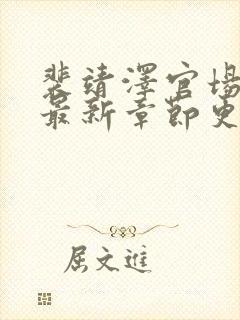 裴靖泽官场
最新章节更
屈文进